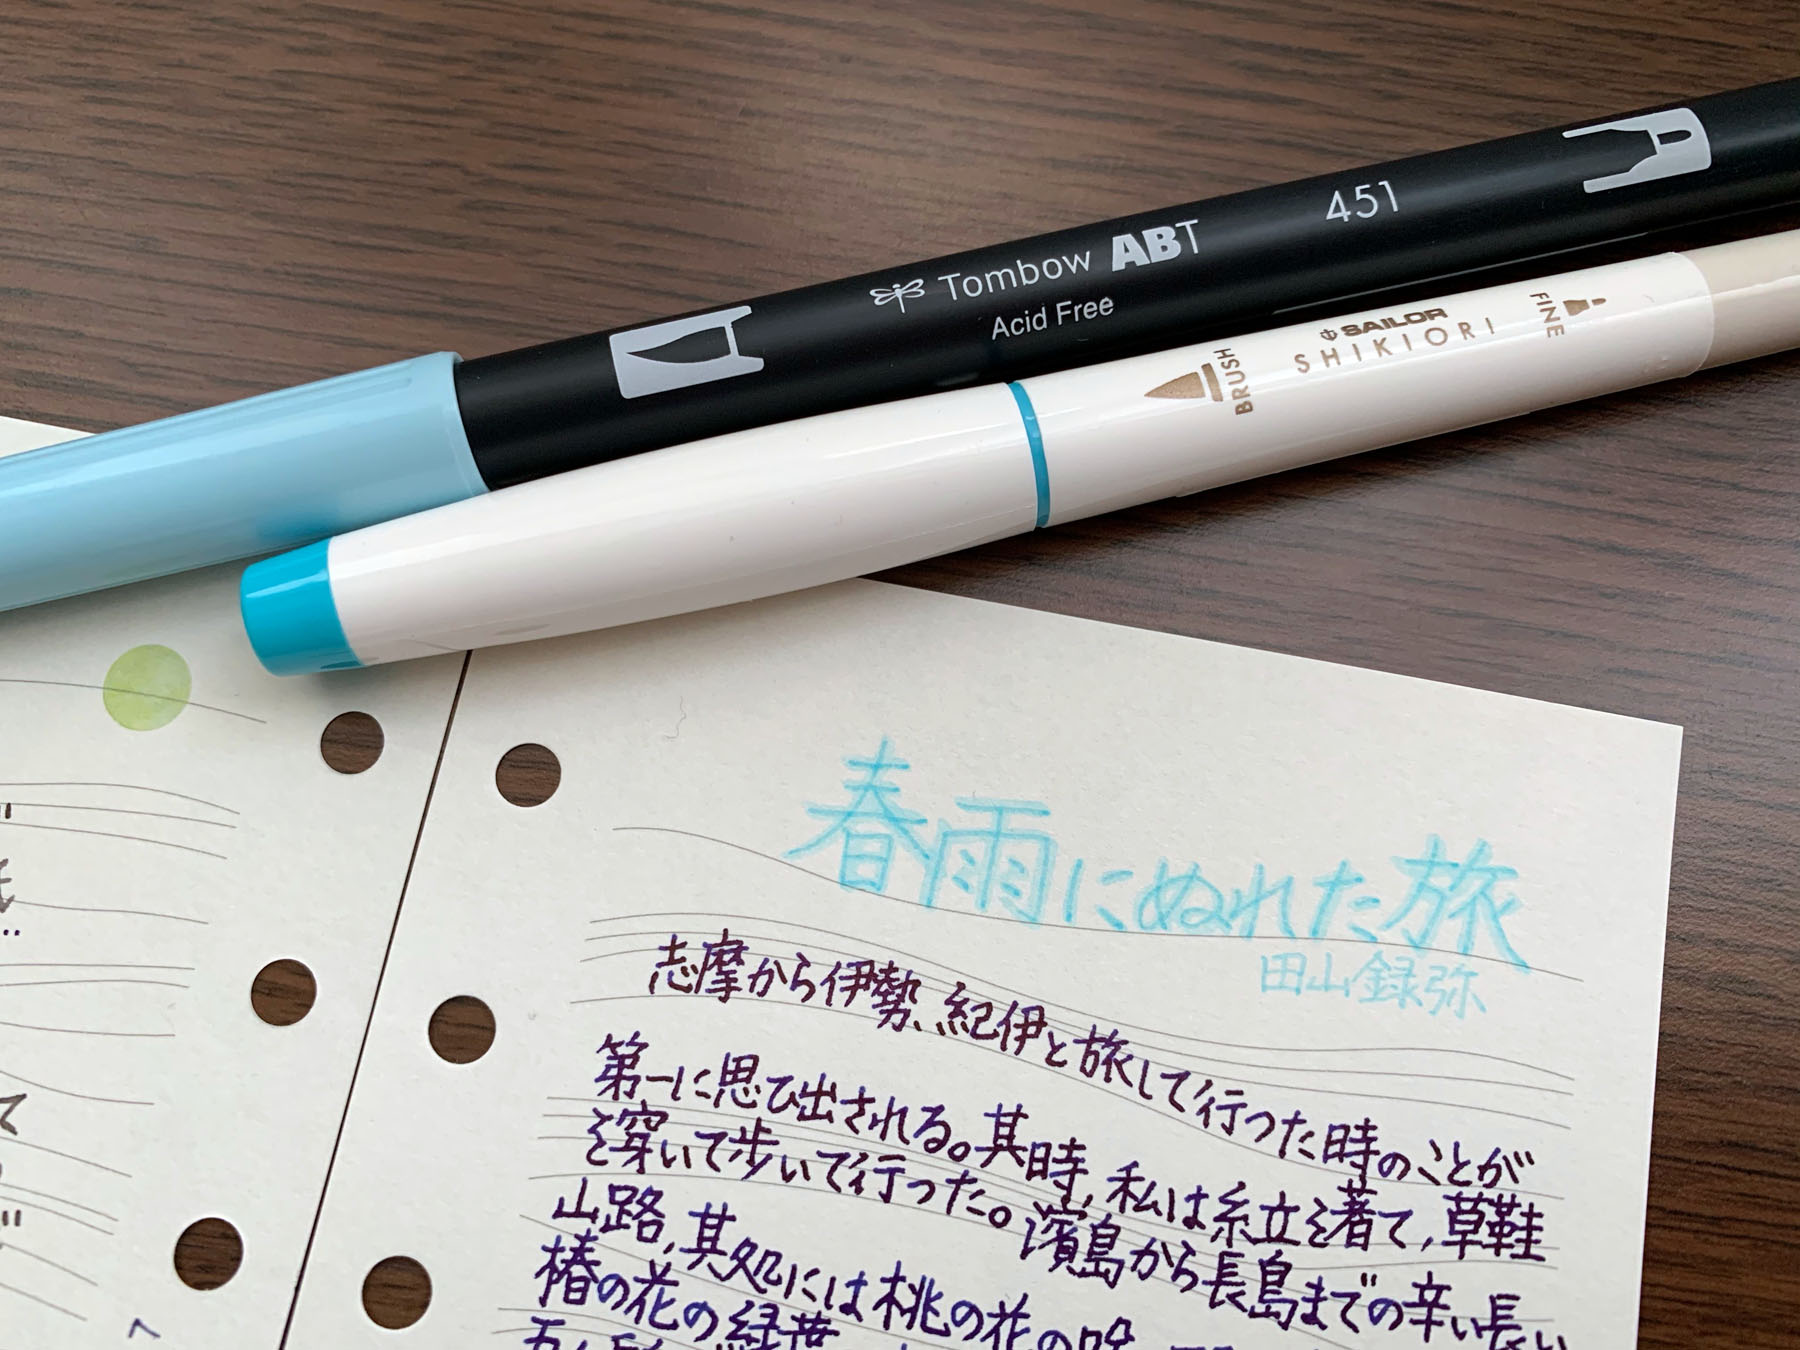 Tombow ABT 451
Acid Free
SAILOR
SHIKIORI
BRUSH
FINE
春雨にぬれた旅
田山録弥
志摩から伊勢、紀伊と旅して行つた時のことが
第一に思ひ出される。其時、私は糸立を着て、草鞋
を穿いて歩いて行つた。濱島から長島までの辛い長い
山路、其処には桃の花の
椿の花の緑葉